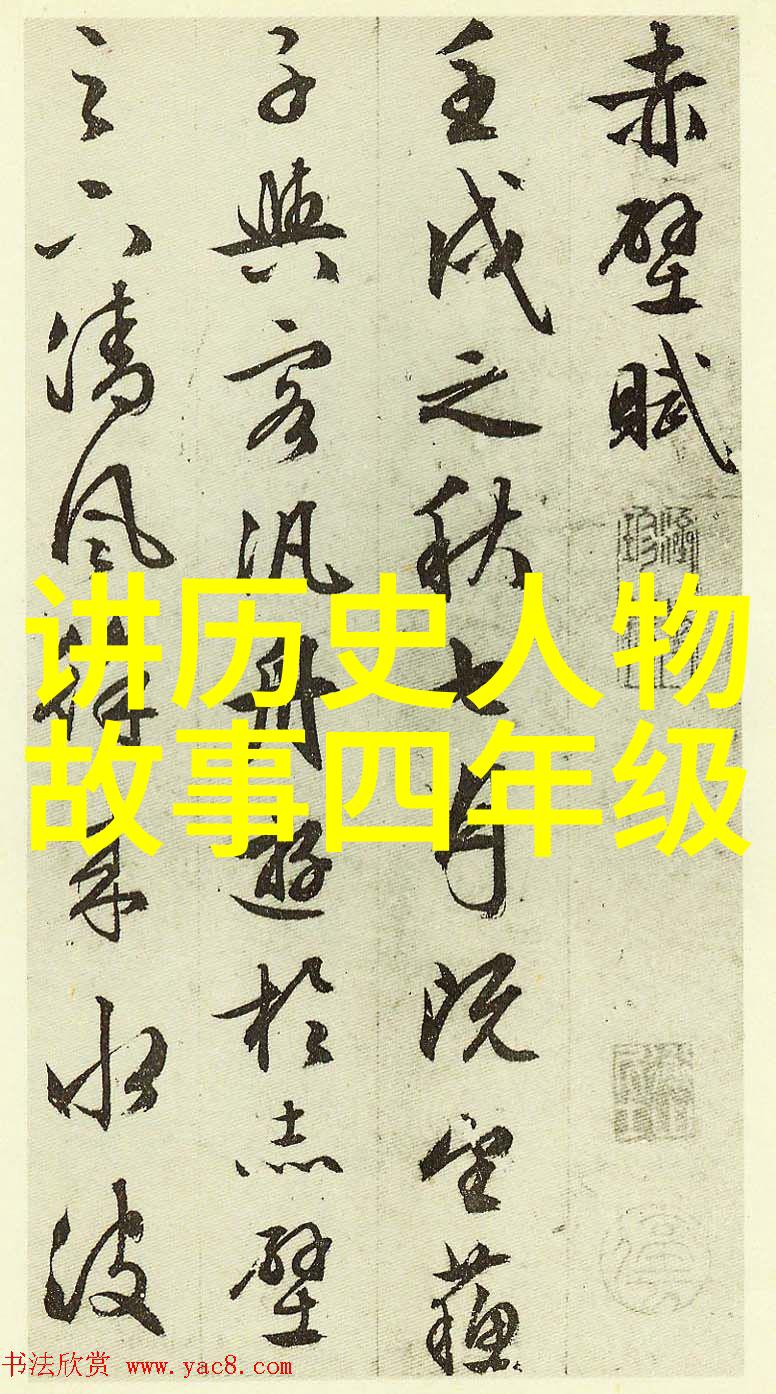 赤壁賦
壬戌之秋七月既望蘇
子與客汎舟遊於赤壁
之下清風徐來水波
讲历史人物
故事四年级
书法欣赏 www.yac8.com